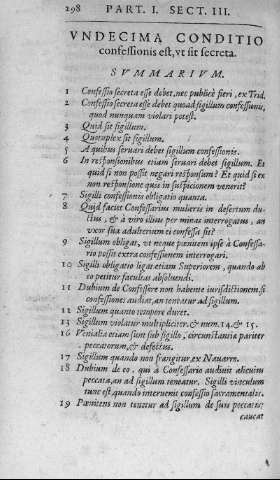 298 PART. I. SECT. III.
VNDECIMA CONDITIO
confessionis est, vt sit secreta.
SVMMARIVM.
1 Confessio secreta esse debet, nec publicè fieri, ex Trid.
2 Confessio secreta esse debet quoad sigillum confessionis,
quod nunquam violari potest.
3 Quid sit sigillum.
4 Quotuplex sit sigillum.
5 A quibus seruari debet sigillum confessionis.
6 In responsionibus etiam seruari debet sigillum. Et
quid si non possit negari responsum? Et quid si ex
non responsione quis in suspicionem venerit?
7 Sigilli confessionis obligatio quanta.
8 Quid faciet Confessarius mulieris in desertum du-
ctus, & à viro illius per minas interrogatus, an
vxor sua adulterium ei confessa sit?
9 Sigillum obligat, vt neque pænitens ipse à Confessa-
rio possit extra confessionem interrogari.
10 Sigilli obligatio ligat etiam Superiorem, quando ab
eo petitur facultas absoluendi.
11 Dubium de Confessore non habente iurisdictionem, si
confessiones audiat, an teneatur ad sigillum.
12 Sigillum quanto tempore duret.
13 Sigillum violatur multipliciter, & num. 14. & 15.
16 Venialia etiam sunt sub sigillo, circunstantiæ pariter
peccatorum, & defectus.
17 Sigillum quando non frangitur, ex Nauarro.
18 Dubium de eo, qui à Confessario audiuit alicuius
peccata, an ad sigillum teneatur. Sigilli vinculum
tunc est, quando interuenit confessio sacramentalis.
19 Pænitens non tenetur ad sigillum de suis peccatis:
caueat